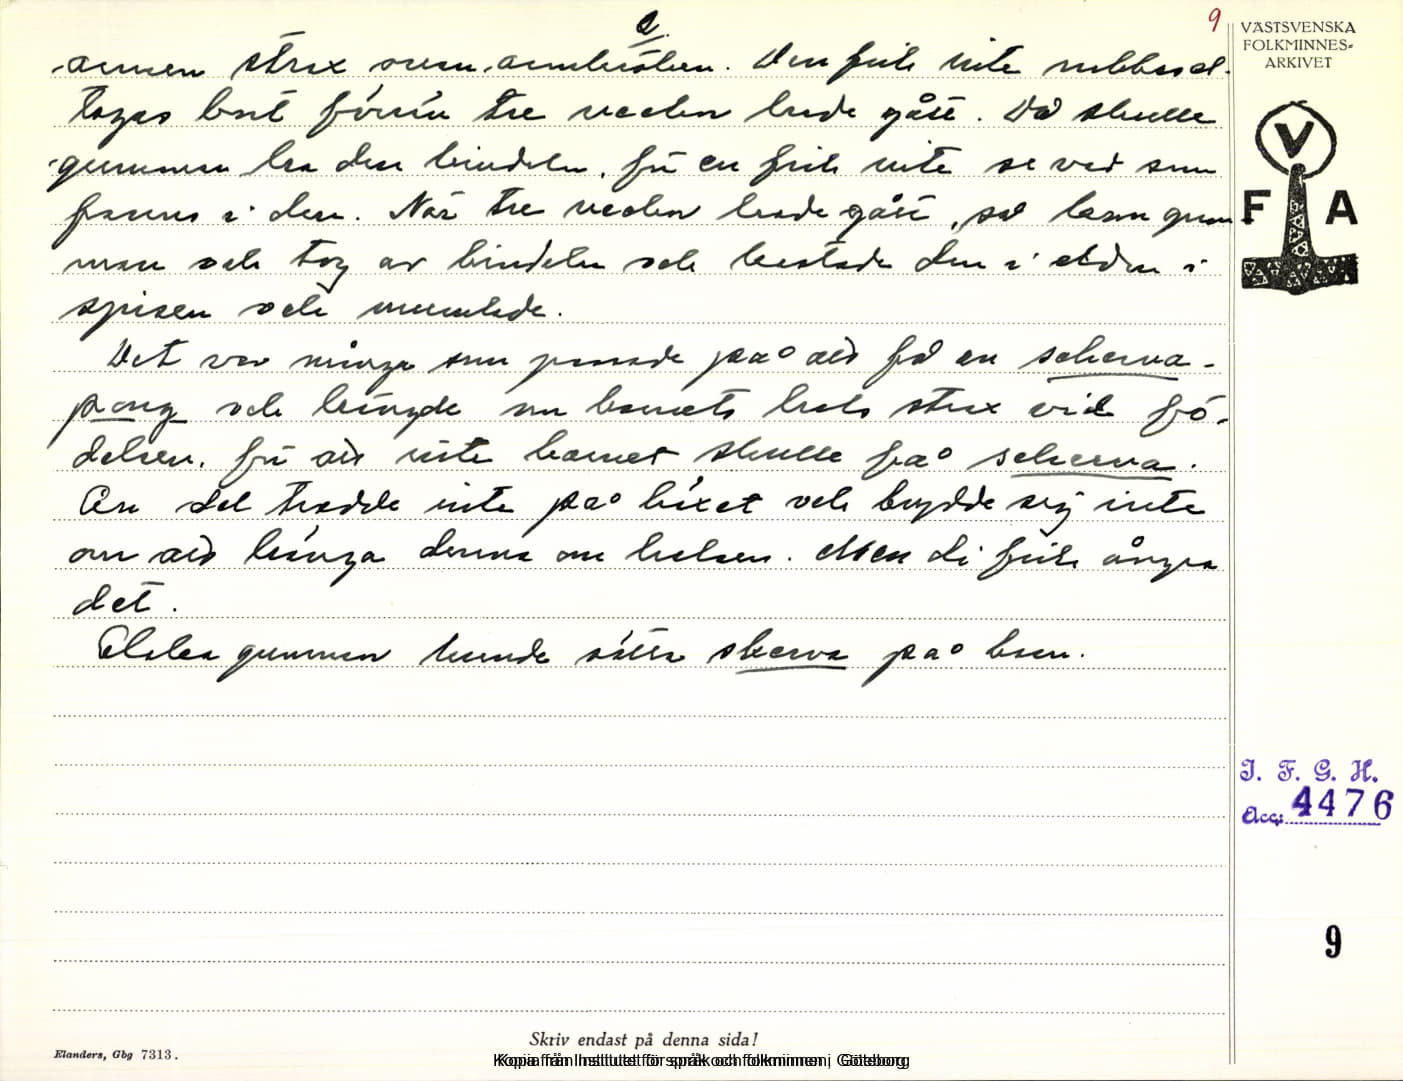 2.
9
armen strax ovan armbröten. Den fick inte
tagas bort förrän tre veckor hade gått. Då skulle
gumman ha den bindeln, för en fick inte se vad som
fanns i den. När tre veckor hade gått, så kom gum-
man och tog av bindeln och kastade den i elden i
spisen och mumlade.
Det var många som passade på att få en skerva-
pong och hängde om barnets hals strax vid fö-
delsen, för att inte barnet skulle få skerva.
En del trodde inte på höxet och brydde sig inte
om att hänga denna om halsen. Men di fick ångra
det.
Elaka gummor kunde sätta skerva på barn.
VÄSTSVENSKA
FOLKMINNES-
ARKIVET
V
F A
I. F. G. H.
Acc. 4476
9
Skriv endast på denna sida!
Elanders, Gbg 7313.
Kopia från Institutet för språk och folkminnen, Göteborg